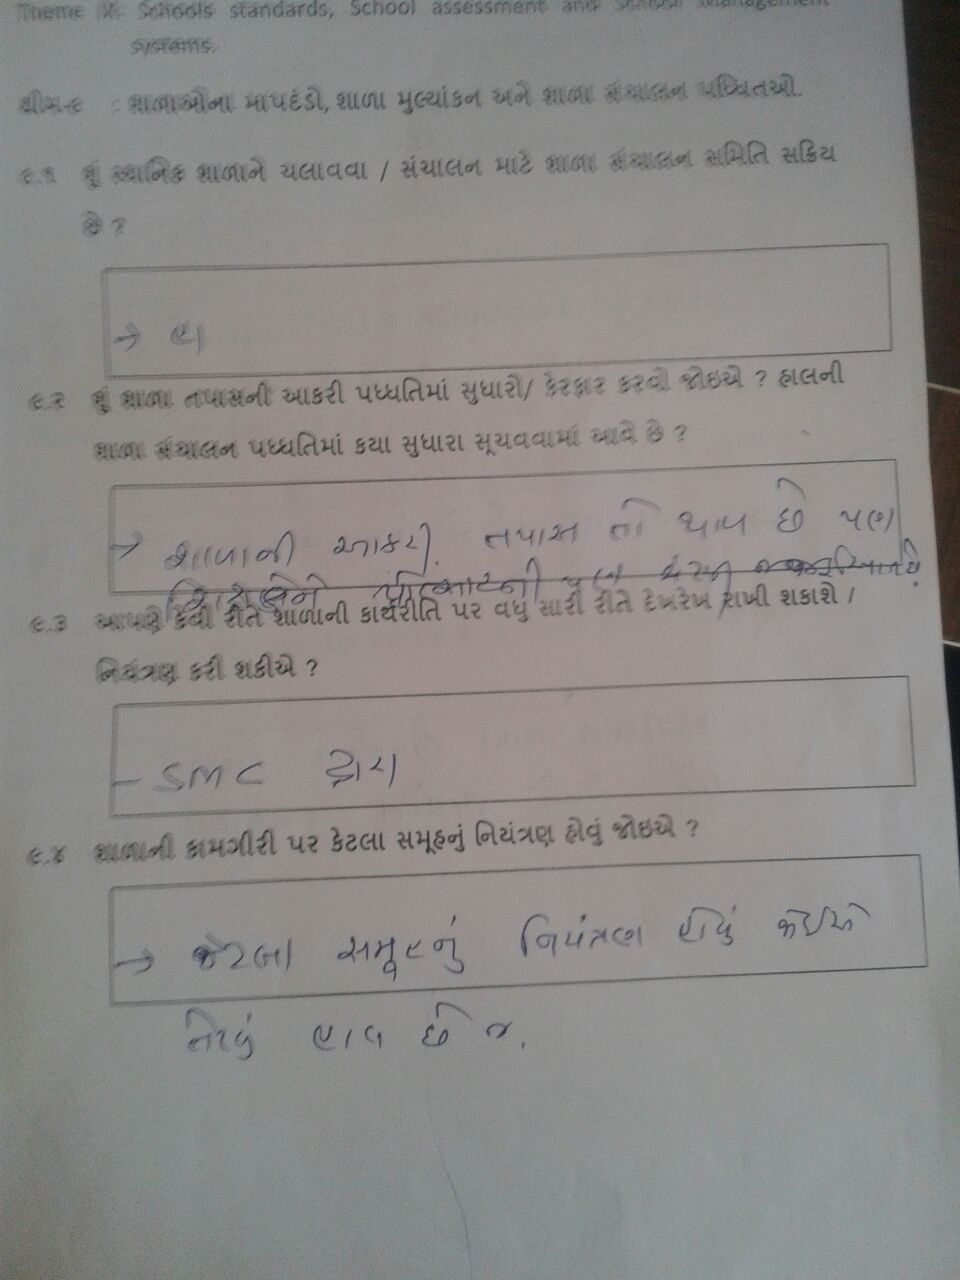 Theme IX. Schools standards, School assessment and School Management
systems.
થીમ-૯ : શાળાઓના માપદંડો, શાળા મુલ્યાંકન અને શાળા સંચાલન પધ્ધિતઓ.
૯.૧ શું સ્થાનિક શાળાને ચલાવવા / સંચાલન માટે શાળા સંચાલન સમિતિ સક્રિય
છે ?
→ હા
૯.૨ શું શાળા તપાસની આકરી પધ્ધતિમાં સુધારો/ ફેરફાર કરવો જોઇએ ? હાલની
શાળા સંચાલન પધ્ધતિમાં કયા સુધારા સૂચવવામાં આવે છે ?
→ શાળાની આકરી તપાસ તો થાય છે પણ
શિક્ષકોને
૯.૩ આપણે કેવી રીતે શાળાની કાર્યરીતિ પર વધુ સારી રીતે દેખરેખ રાખી શકાશે /
નિયંત્રણ કરી શકીએ ?
- SMC દ્વારા
૯.૪ શાળાની કામગીરી પર કેટલા સમૂહનું નિયંત્રણ હોવું જોઇએ ?
→ જેટલા સમૂહનું નિયંત્રણ હોવું જોઇએ
તેટલું હાલ છે જ.